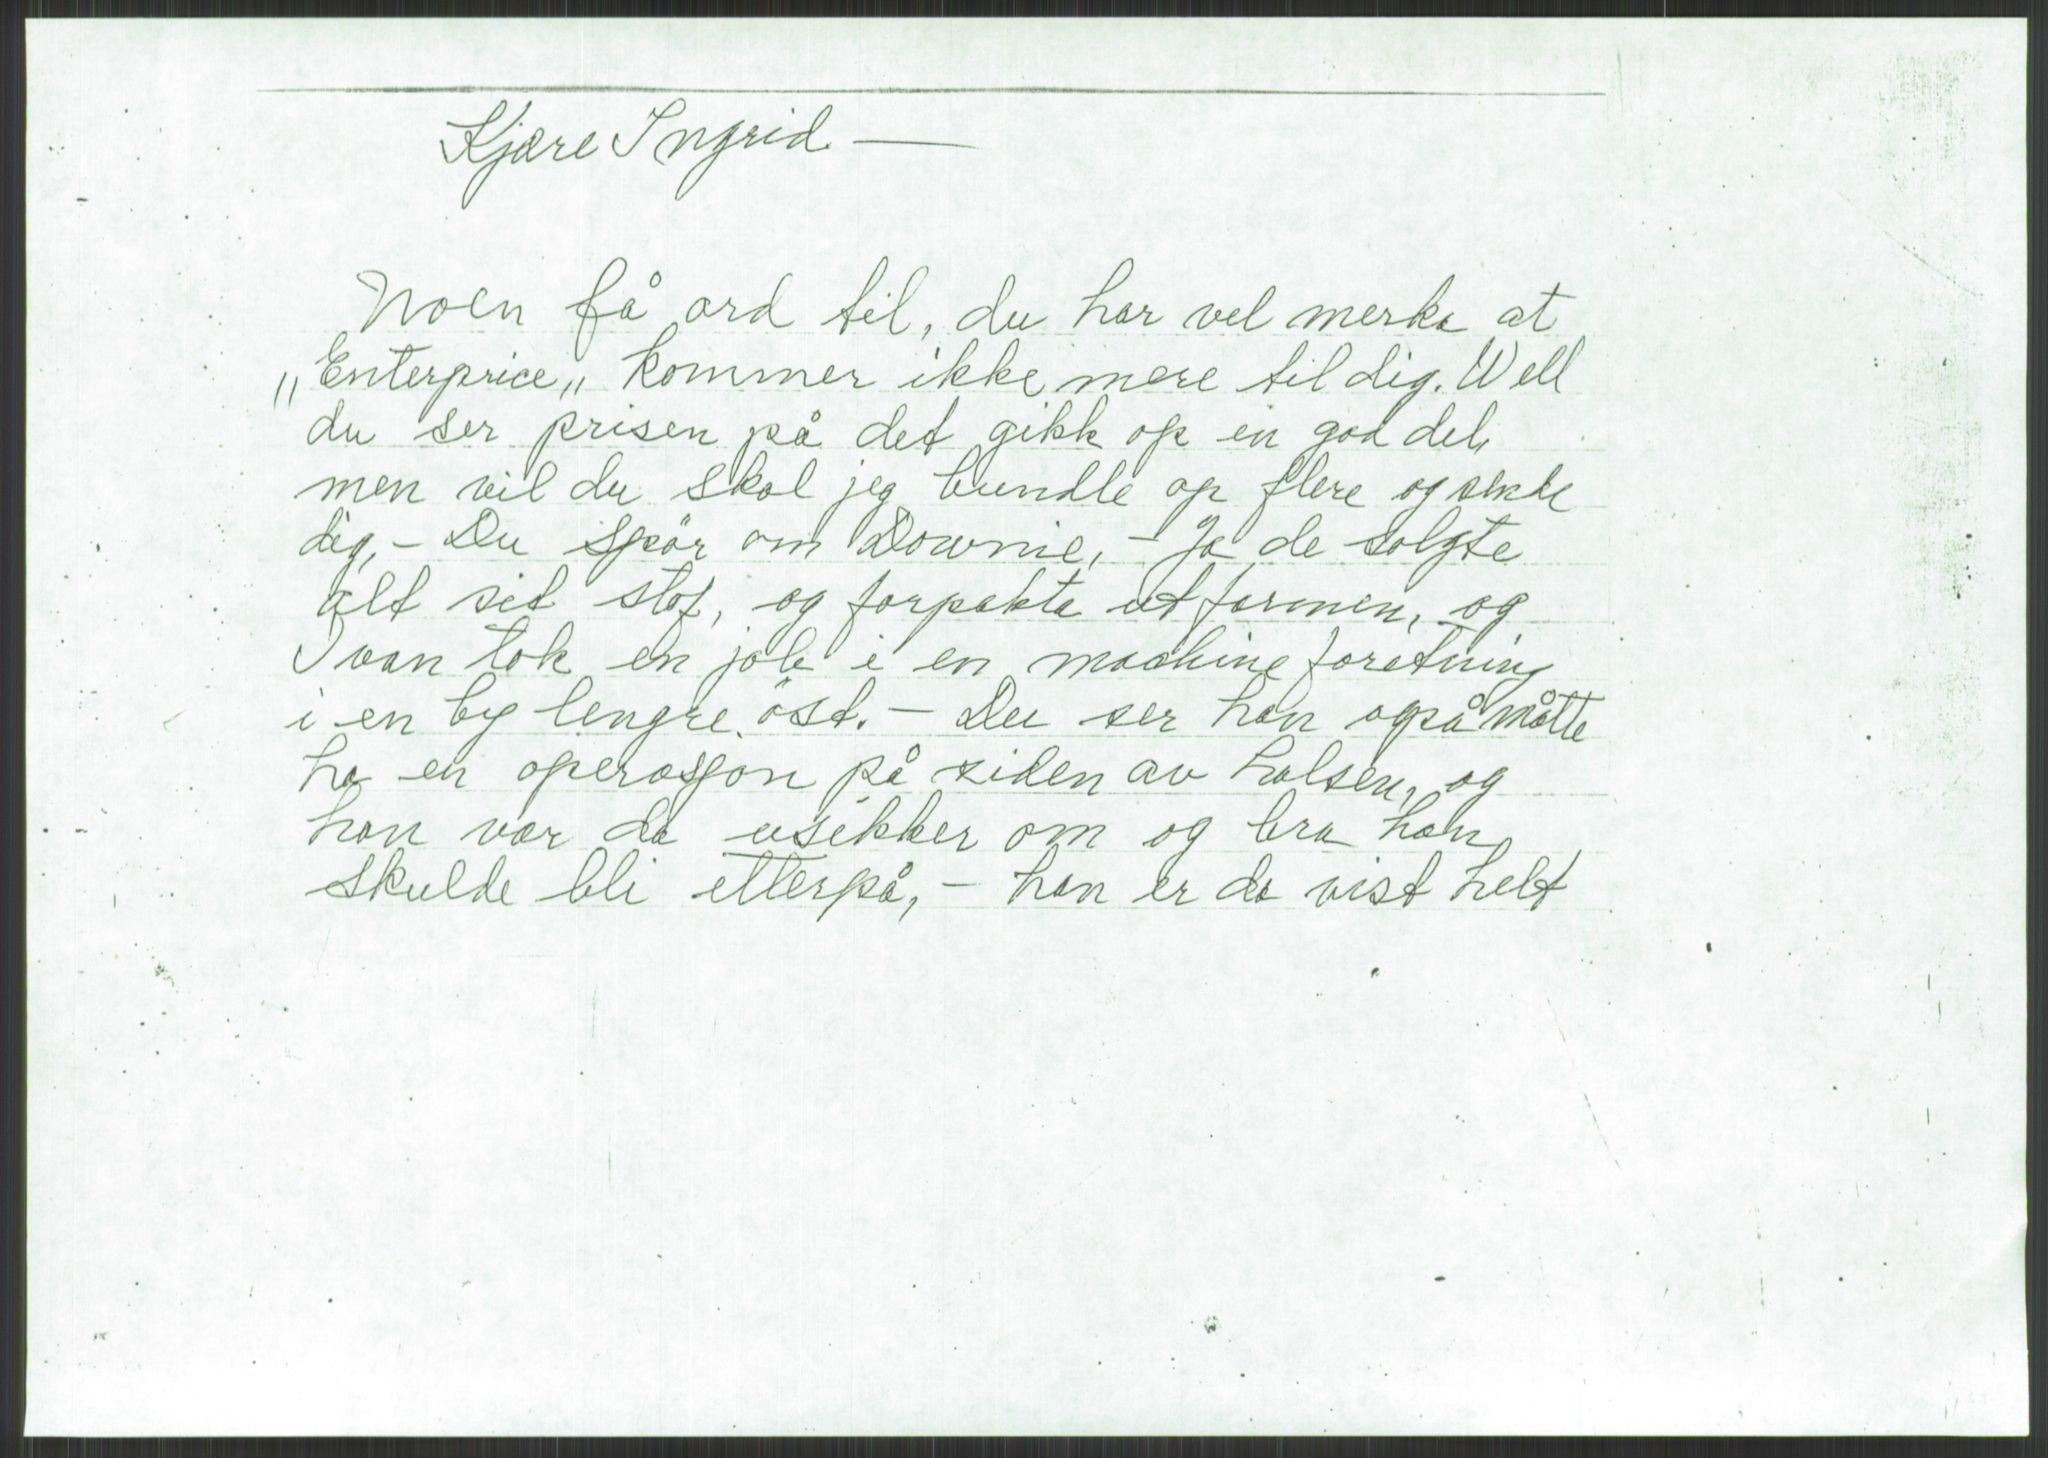 Kjære Ingrid. —
Noen få ord til, du har vel merka at
„Enterprice„ kommer ikke mere til dig. Well
du ser prisen på det gikk op en god del,
men vil du skal jeg bundle op flere og sende
dig, – Du spör om Downie, – Ja de solgte
alt sit stof, og forpakta ut farmen, og
Ivan tok en job i en machine foretning
i en by lengre öst. – Du ser han også måtte
ha en operasjon på siden av halsen, og
han var da usikker om og bra han
skulde bli etterpå, – han er da vist helt